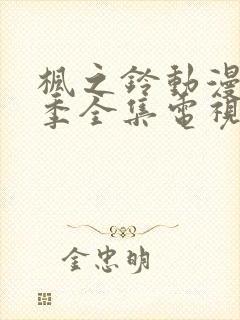 楓之鈴動漫
季全集電視
金忠明